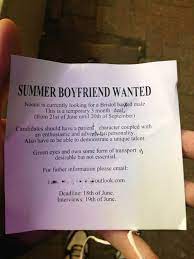 SUMMER BOYFRIEND WANTED
Naomi is currently looking for a Bristol based male
This is a temporary 3 month deal,
(from 21st of June until 20th of September)
Candidates should have a patient character coupled with
an enthusiastic and adventurous personality.
Also have to be able to demonstrate a unique talent.
Green eyes and own some form of transport
desirable but not essential.
For futher information please email:
outlook.com
Deadline: 18th of June.
Interviews: 19th of June.